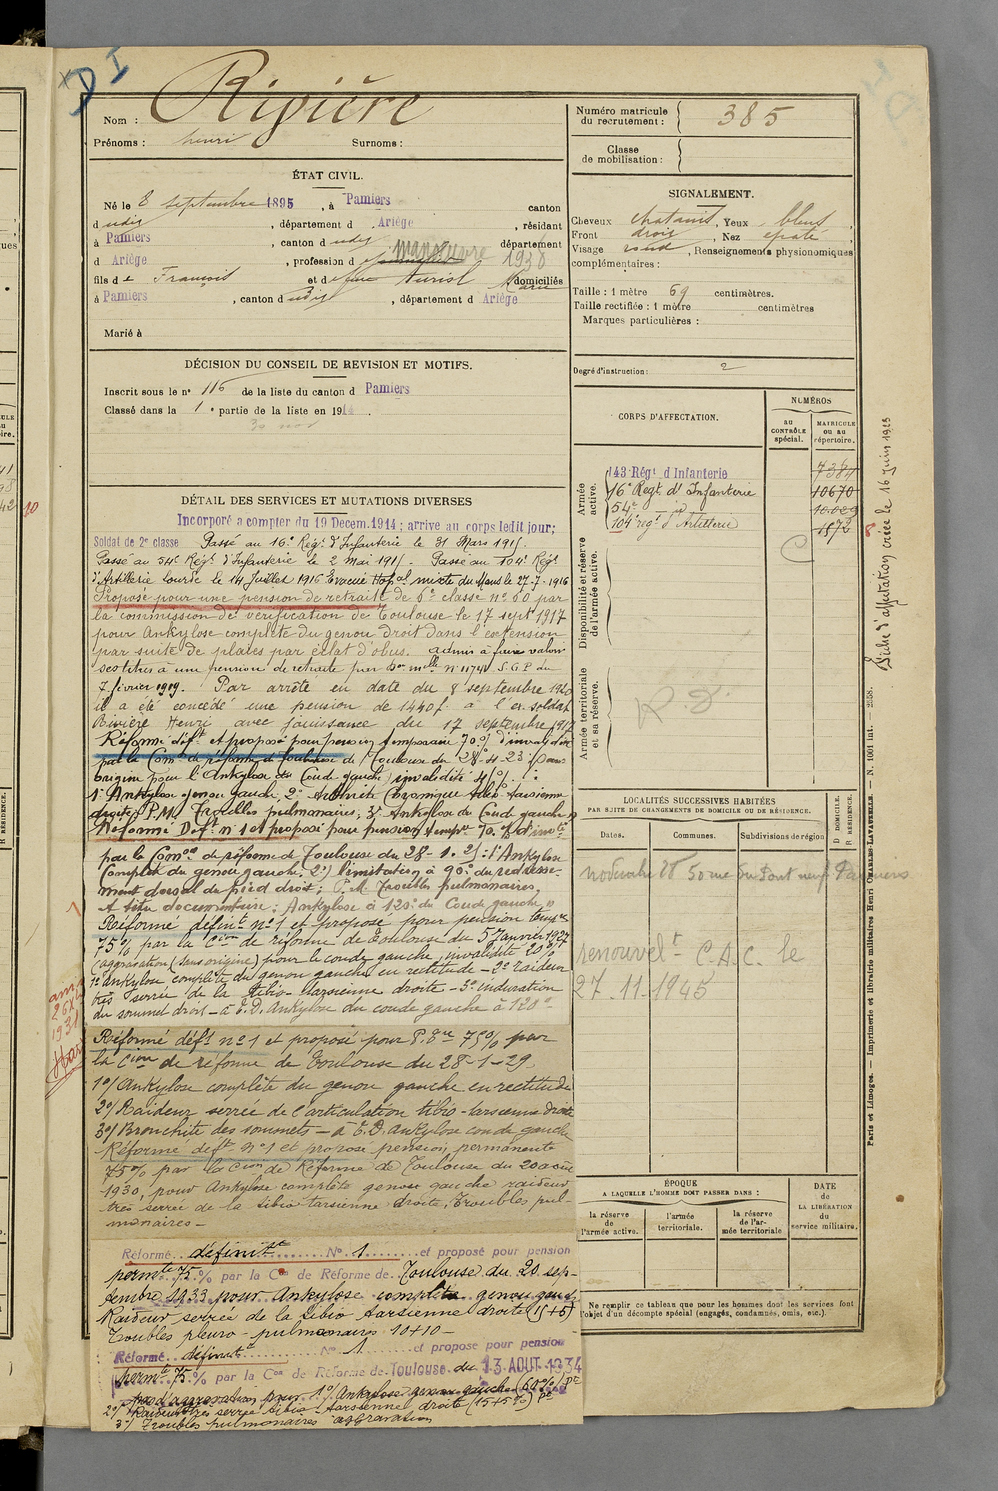 DI
Nom : Rivière
Prénoms : henri Surnoms :
ÉTAT CIVIL.
Né le 8 septembre 1895, à Pamiers canton
d udit, département d Ariège, résidant
à Pamiers, canton d udit département
d Ariège, profession d manœuvre 1938
fils de François et d Marie domiciliés
à Pamiers, canton d udit, département d Ariège
Marié à
DÉCISION DU CONSEIL DE REVISION ET MOTIFS.
Inscrit sous le n° 116 de la liste du canton d Pamiers
Classé dans la 1e partie de la liste en 191
DÉTAIL DES SERVICES ET MUTATIONS DIVERSES
Incorporé a compter du 19 Decem. 1914 ; arrive au corps ledit jour;
Soldat de 2e classe Passé au 16e Régt d'Infanterie le 31 Mars 1915.
Passé au 54e Régt d'Infanterie le 2 mai 1915. Passé au 104e Régt
d'Artillerie lourde le 14 Juillet 1916 Evacué Hopal mixte du Mans le 27-7-1916
Proposé pour une pension de retraite de 6e classe n° 80 par
la commission de vérification de Toulouse le 17 sept 1917
pour Ankylose complète du genou droit dans l'extension
par suite de plaies par éclat d'obus. admis à faire valoir
ses titres à une pension de retraite par Don mlle N° 11741 S.G.P. du
7 février 1919. Par arrêté en date du 8 septembre 1920
il a été concédé une pension de 1440f à l'ex. soldat
Rivière Henri avec jouissance du 17 septembre 1917
Réformé déft et proposé pour pension temporaire 70% d'invalidité
par la Comon de réforme de Toulouse du 28-4-23 : sans
origine pour l'Ankylose du Coude gauche, invalidité
1° Ankylose genou gauche, 2° Arthrite Chronique tibio-tarsienne
droite, P.M. Troubles pulmonaires, 3° Ankylose du Coude gauche
Réformé Déft n° 1 et proposé pour pension tempre 70% d'invté
par la Comon de réforme de Toulouse du 28-1-25 : 1° Ankylose
Complète du genou gauche, 2°) limitation à 90° du redresse-
ment dorsal du pied droit ; P.M. Troubles pulmonaires,
A titre documentaire : Ankylose à 120° du Coude gauche
Réformé définit n° 1 et proposé pour pension tempre
75% par la Cion de réforme de Toulouse du 5 Janvier 1927
(aggravation (sans origine) pour le coude gauche, invalidité 20%
1° ankylose complète du genou gauche en rectitude - 2° raideur
très serrée de la tibio-tarsienne droite - 3° induration
du sommet droit - à t.D. ankylose du coude gauche à 120°
Réformé déft n° 1 et proposé pour P. 75% par
la Cion de réforme de Toulouse du 28-1-29.
1°/ Ankylose complète du genou gauche en rectitude
2°/ Raideur serrée de l'articulation tibio-tarsienne droite
3°/ Bronchite des sommets - à t.D. ankylose coude gauche
Réformé déft n° 1 et propose pension permanente
75% par la Cion de Réforme de Toulouse du 20
1930, pour Ankylose complète genou gauche raideur
très serrée de la tibio tarsienne droite, Troubles pul-
monaires -
Réformé définit N° 1 et proposé pour pension
permte 75 % par la Con de Réforme de Toulouse du 20 sep-
tembre 1933 pour Ankylose complète genou gauc.
Raideur serrée de la tibio tarsienne droite (15+5)
Troubles pleuro-pulmonaires 10+10 -
Réformé définit N° 1 et propose pour pension
permte 75 % par la Con de Réforme de Toulouse du 13 AOUT 1934
pas d'aggravation pour 1°/ Ankylose genou gauche (60%) Pte
2°/ Raideur très serrée tibio-tarsienne droite (15+5%) Pte
3°/ Troubles pulmonaires aggravation
Numéro matricule
du recrutement : 385
Classe
de mobilisation :
SIGNALEMENT.
Cheveux chatains, Yeux bleus,
Front droit, Nez epaté
Visage rond, Renseignements physionomiques
complémentaires :
Taille : 1 mètre 69 centimètres.
Taille rectifiée : 1 mètre centimètres
Marques particulières :
Degré d'instruction : 2
CORPS D'AFFECTATION.
NUMÉROS
au
CONTRÔLE
spécial.
MATRICULE
ou au
répertoire.
Armée
active.
143 Régt d Infanterie 7384
16e Regt d' Infanterie 10670
54e
104e regt d'Artillerie 1872
Disponibilité et réserve
de l'armée active.
Armée territoriale
et sa réserve.
R.D.
LOCALITÉS SUCCESSIVES HABITÉES
PAR SUITE DE CHANGEMENTS DE DOMICILE OU DE RÉSIDENCE.
Dates. Communes. Subdivisions de région
D. DOMICILE.
R. RÉSIDENCE.
novembre 28 50 rue du Pont neuf Pamiers
renouvelt - C.A.C. le
27-11-1945
ÉPOQUE
A LAQUELLE L'HOMME DOIT PASSER DANS :
la réserve
de
l'armée active.
l'armée
territoriale.
la réserve
de l'ar-
mée territoriale
DATE
de
LA LIBÉRATION
du
service militaire.
Ne remplir ce tableau que pour les hommes dont les services font
l'objet d'un décompte spécial (engagés, condamnés, omis, etc.).
Fiche d'affectation créée le 16 juin 1923
Paris et Limoges. — Imprimerie et librairie militaires Henri CHARLES-LAVAUZELLE. — N. 1001 int. — 2558.